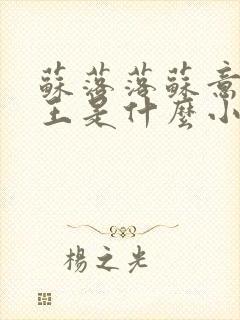 蘇落落蘇意
王是什麼小
楊之光